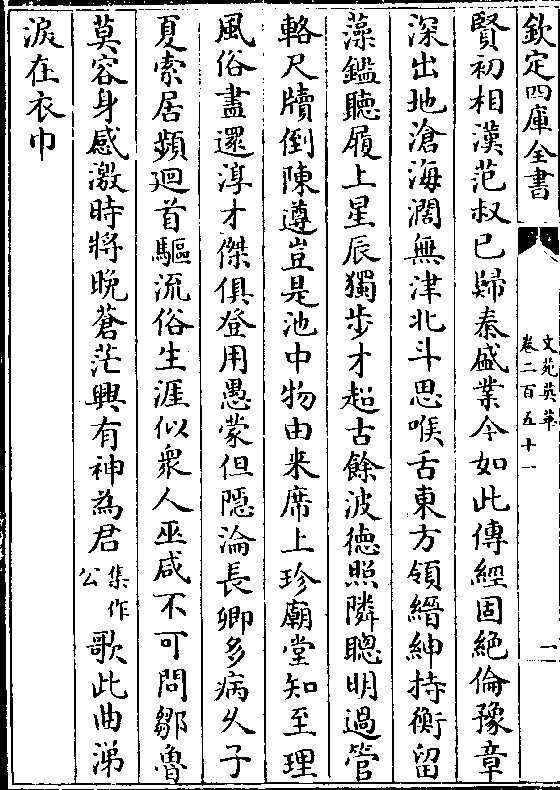 欽定四庫全書
文苑英華
卷二百五十一
一
賢初相漢范叔已歸秦盛業今如此傳經固絶倫豫章
深出地滄海濶無津北斗思喉舌東方領縉紳持衡留
藻鑑聽履上星辰獨步才超古餘波德照隣聰明過管
輅尺牘倒陳遵豈是池中物由来席上珍廟堂知至理
風俗盡還淳才傑俱登用愚蒙但隠淪長卿多病久子
夏索居頻迴首驅流俗生涯似衆人巫咸不可問鄒魯
莫容身感激時將晚蒼茫興有神為君集作公歌此曲涕
淚在衣巾